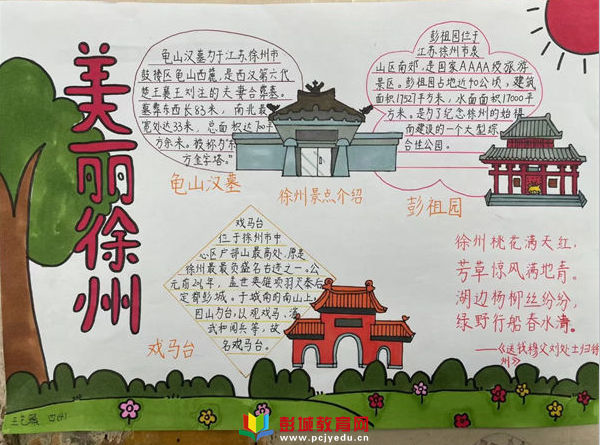 美丽徐州
龟山汉墓为于江苏徐州市
鼓楼区龟山西麓，是西汉第六代
楚王襄王刘注的夫妻合葬墓。
墓葬东西长83米，南北最
宽处达33米，总面积达700平
方余米。被称为
方金字塔。"
龟山汉墓
徐州景点介绍
彭祖园位于
江苏徐州市泉
山区南郊，是国家AAAA级旅游
景区。彭祖园占地近40公顷，建筑
面积17527平方米，水面面积17000平
方米。是为了纪念徐州的始祖
而建设的一个大型综
合性公园。
彭祖园
戏马台
位于徐州市中
心区户部山最高处，原是
徐州最最负盛名古迹之一。公
元前206年，盖世英雄项羽灭秦后
定都彭城。于城南的南山上，
因山为台，以观戏马、演
武和阅兵等，故
名戏马台。
戏马台
徐州桃花满天红，
芳草惊风满地青。
湖边杨柳丝纷纷，
绿野行船春水清。
——《送钱穆父刘处士归徐
州》
四(4)
彭城教育网
www.pcjyedu.cn